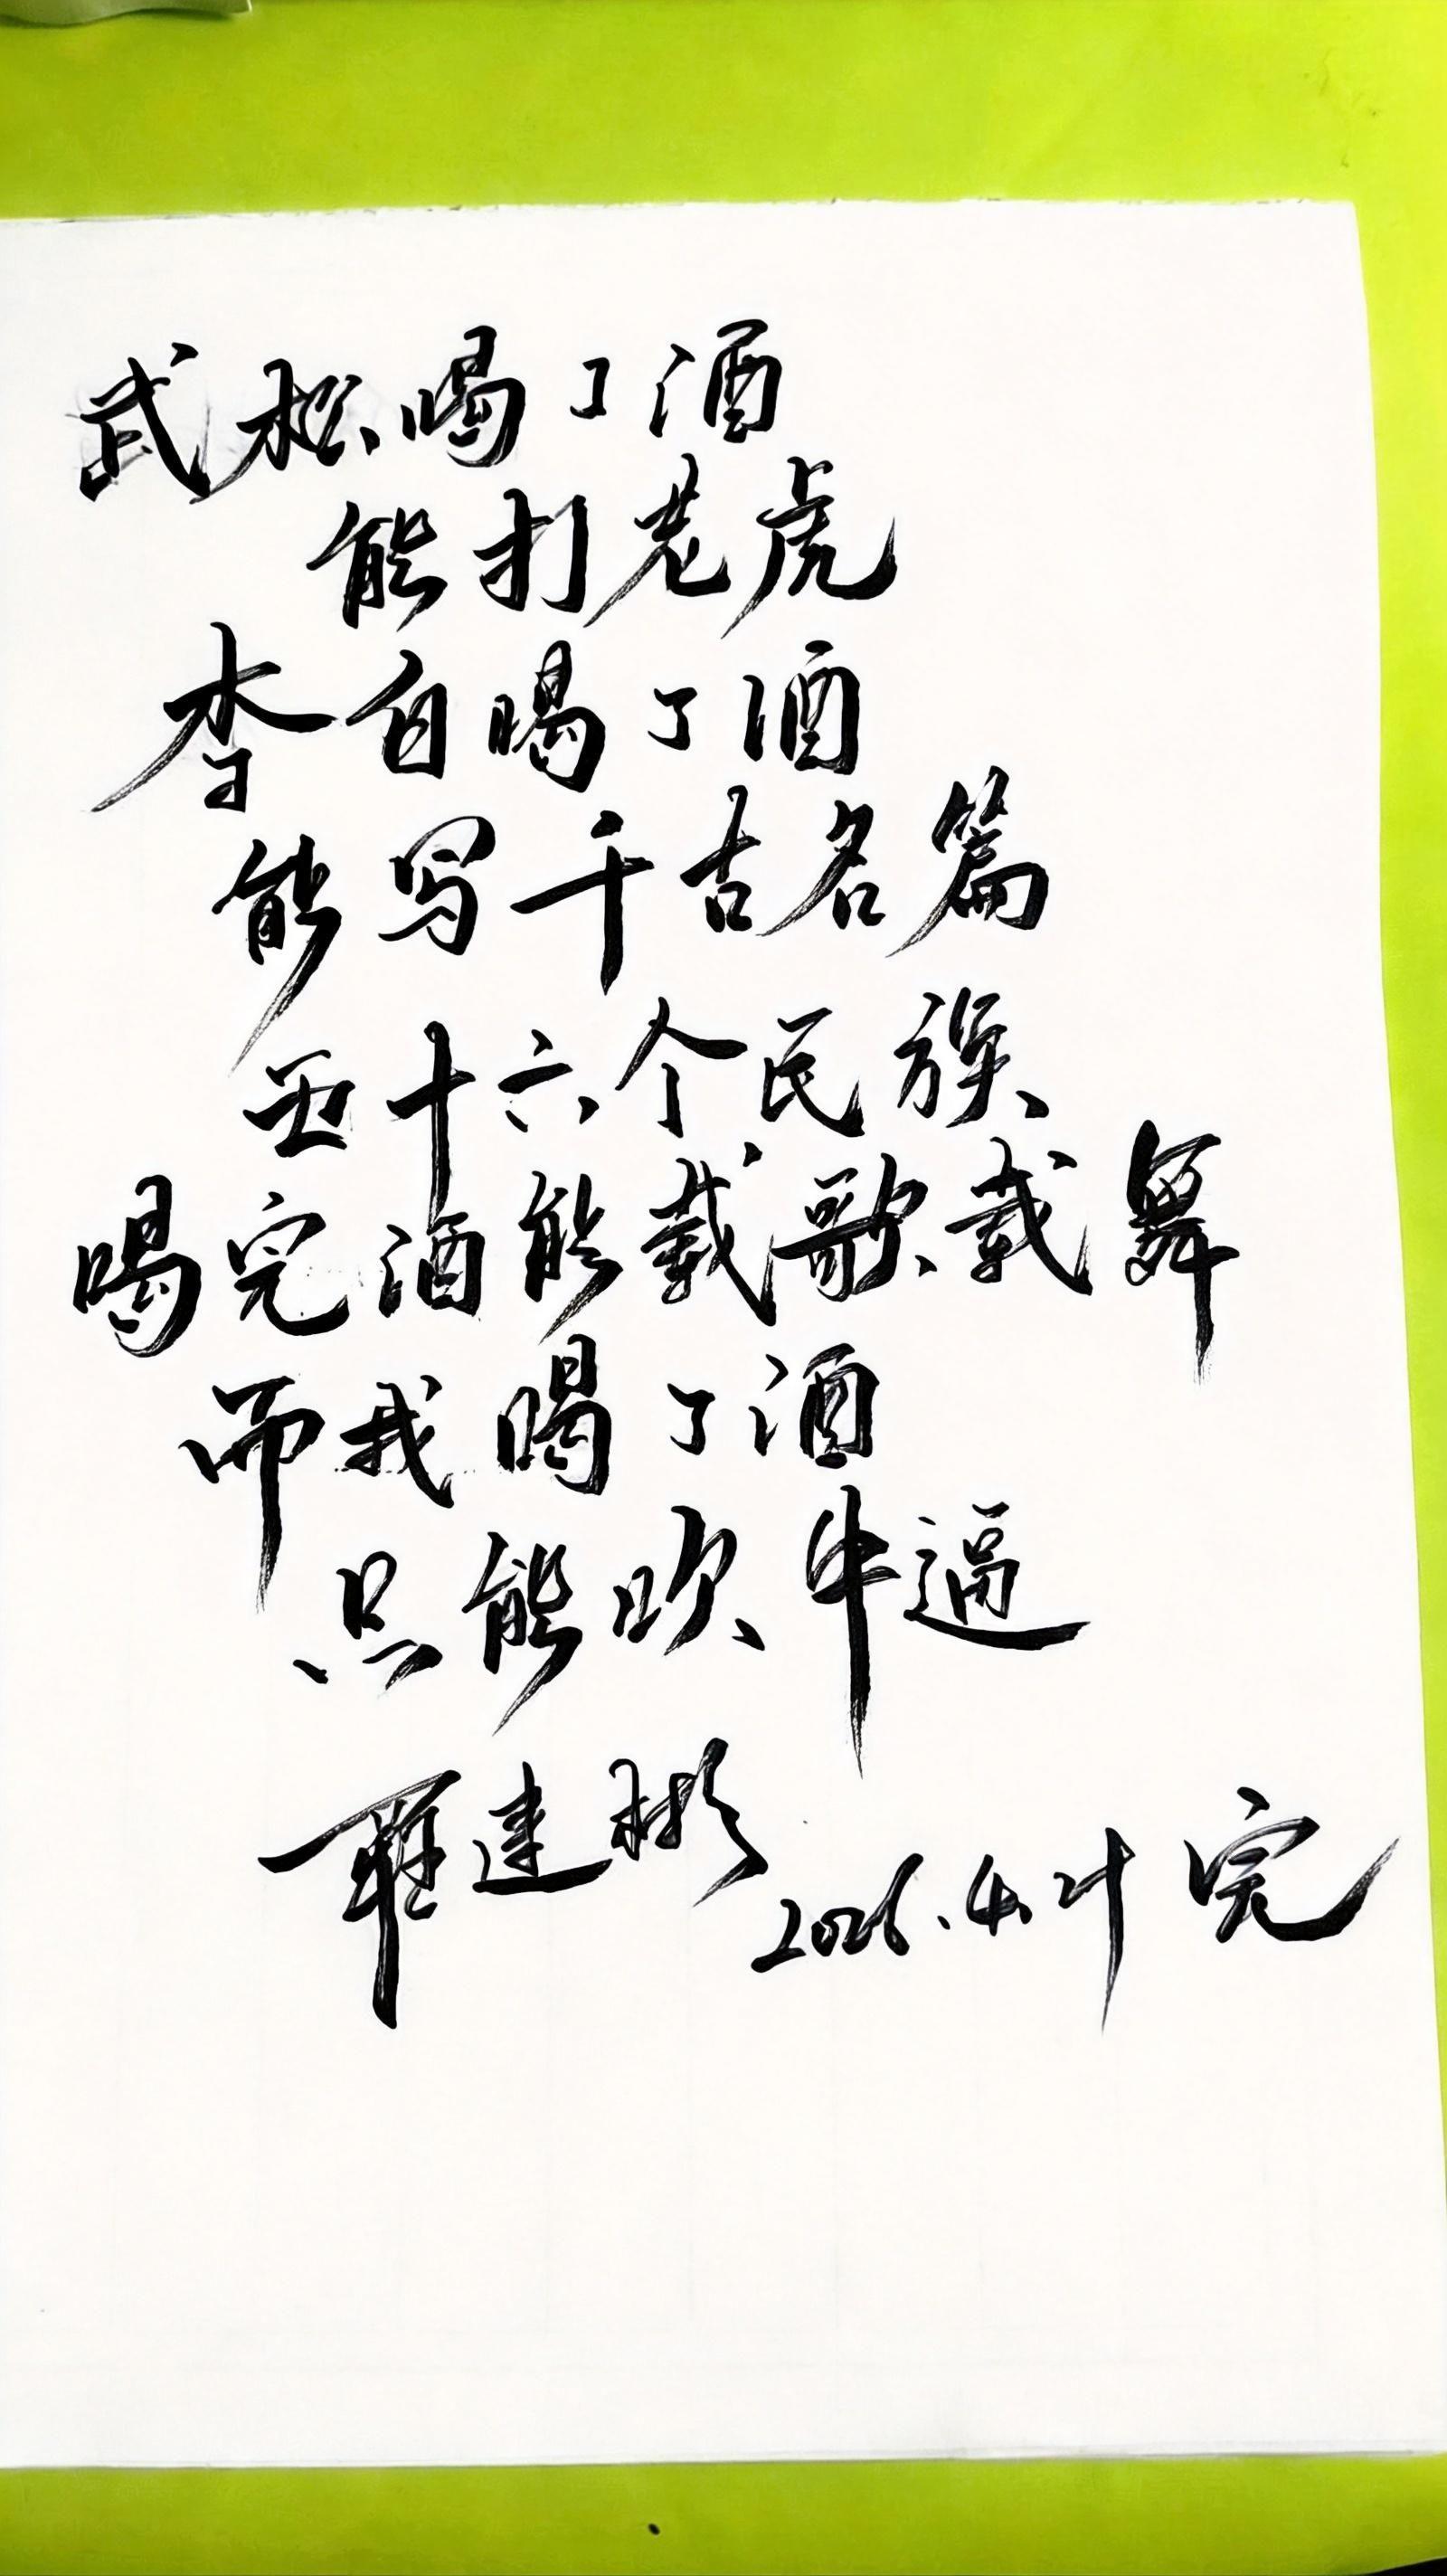 武松喝了酒
能打老虎
李白喝了酒
能写千古名篇
五十六个民族
喝完酒能载歌载舞
而我喝了酒
只能吹牛逼
建彬
2026.4.2 完